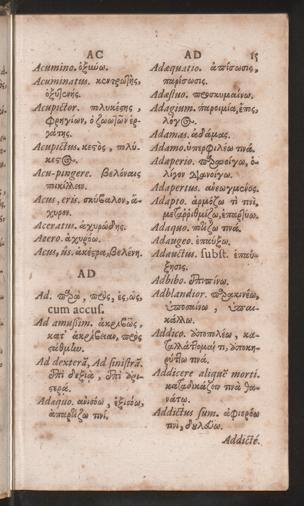 AC
Acumino. ὀξύνω.
Acuminatus. κεντρώδης,
ὀξυγενής.
Acupictor. πλυκέσης,
Φρηγίων, ὁ ζωωδῶν ἐρ-
γάτης.
Acupictus. κεστὸς, πλύ-
κεστος.
Acu-pingere. βελόναις
ποικίλλειν.
Acus, eris. σκύβαλον, ἄ-
χυρον.
Aceratus. ἀχυρώδης.
Acero. ἀχυρόω.
Acus, us. ἀκέστρα, βελόνη.
AD
Ad. παρὰ, πρὸς, ἐς, ὡς,
cum accus.
Ad amussim. ἀκριβῶς,
κατ' ἀκρίβειαν, πρὸς
στάθμην.
Ad dexterã, Ad sinistrã.
ἐπὶ δεξιὰ, ἐπὶ ἀρι-
στερά.
Adæquo. ἀνισόω, ἐξισόω,
ἀπαρτίζω τινί.
AD 15
Adæquatio. ἀπίσωσις,
παρίσωσις.
Adæstuo. προσκυμαίνω.
Adagium. παροιμία, ἔπος,
λόγος.
Adamas. ἀδάμας.
Adamo. ὑπερφιλέω τινά.
Adaperio. παρανοίγω, ὀ-
λίγον διανοίγω.
Adapertus. ἀνεῳγμένος.
Adapto. ἁρμόζω τὶ τινὶ,
μεταῤῥυθμίζω, ἐπαρτύω.
Adaquo. ποτίζω τινά.
Adaugeo. ἐπαύξω.
Adauctus. subst. ἐπαύ-
ξησις.
Adbibo. ἐπιπίνω.
Adblandior. παρακινέω,
ὑποσαίνω, ὑπαι-
κάλλω.
Addico. ἀποπωλέω, κα-
ταλλάττομαί τι, ἀποκη-
ρύττω τινά.
Addicere aliquẽ morti.
καταδικάζειν τινὰ θα-
νάτῳ.
Addictus sum. ἀφιερόω
τινὶ, δουλεύω.
Addictè.